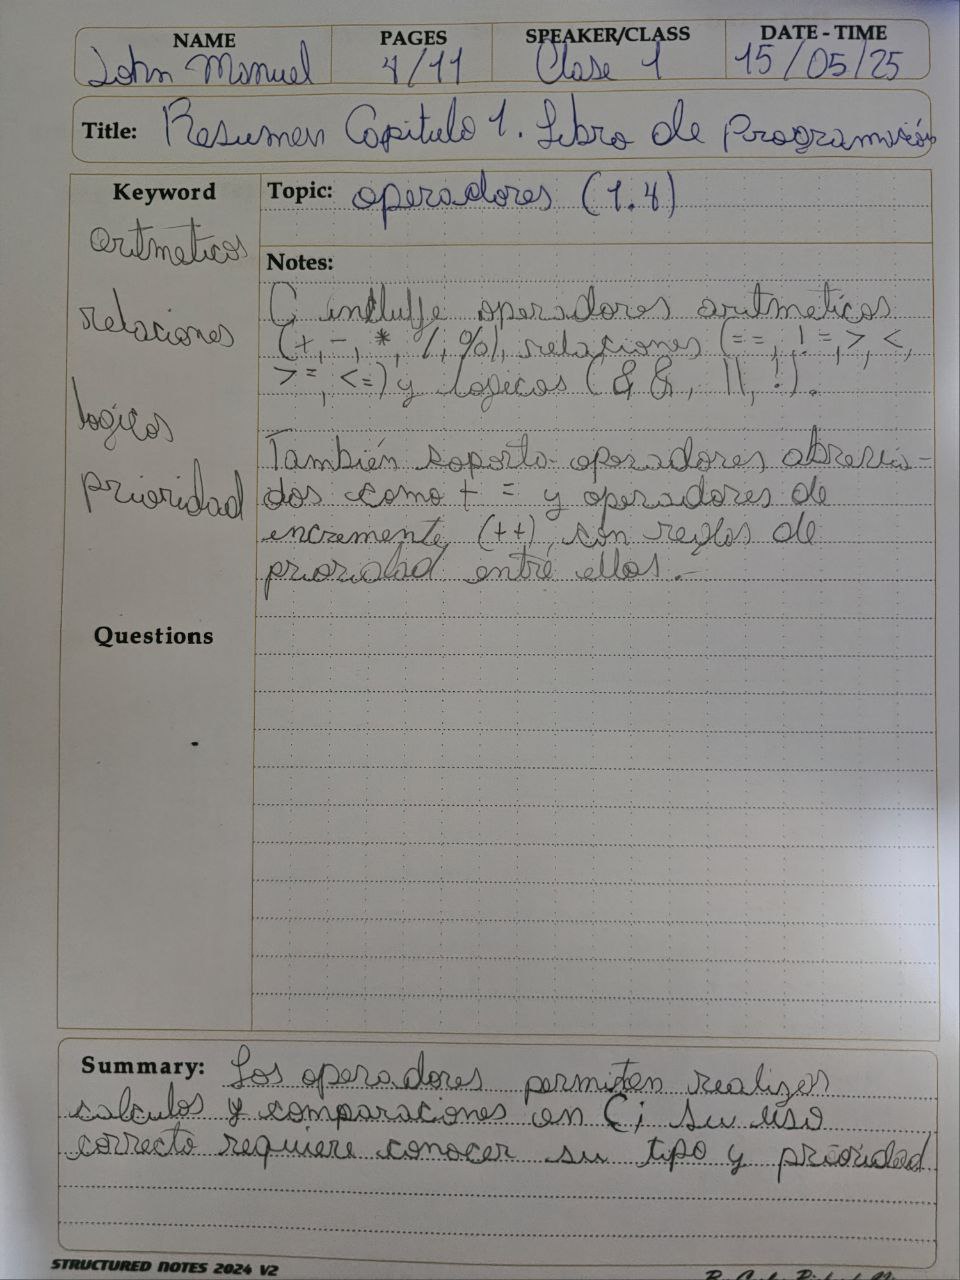 NAME PAGES SPEAKER/CLASS DATE - TIME
John Manuel 4/11 Clase 1 15/05/25
Title: Resumen Capitulo 1. Libro de Programación
Keyword
aritmeticos
relaciones
logicos
prioridad
Questions
Topic: operadores (1.4)
Notes:
C incluye operadores aritmeticos
(+, -, *, /, %), relaciones (==, !=, >, <,
>=, <=) y logicos (&&, ||, !).
También soporta operadores abrevia-
dos como += y operadores de
incremente (++), con reglas de
prioridad entre ellos.-
Summary: Los operadores permiten realizar
calculos y comparaciones en C; su uso
correcto requiere conocer su tipo y prioridad
STRUCTURED NOTES 2024 V2